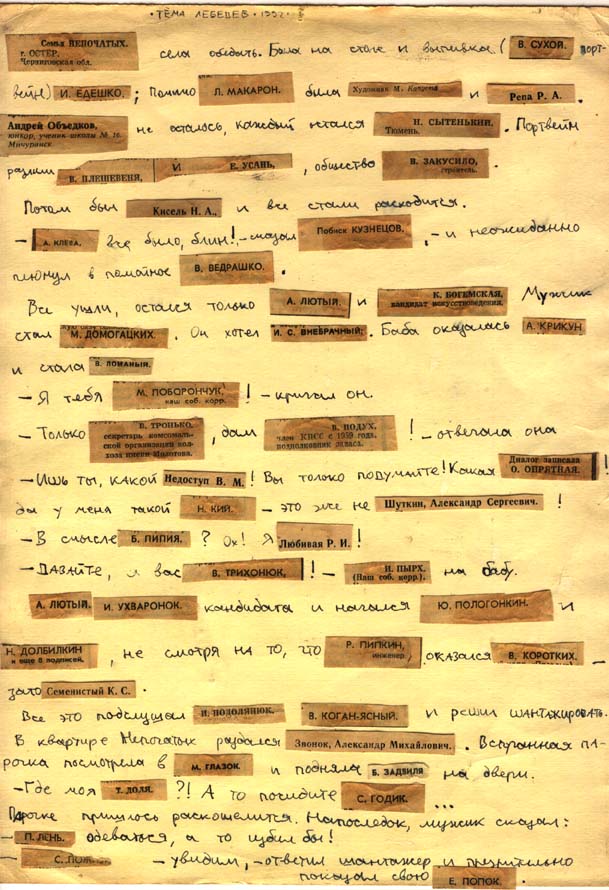 ·ТЁМА ЛЕБЕДЕВ·1992г
Семья НЕПОЧАТЫХ. г. ОСТЁР, Черниговская обл. села обедать. Была на столе и выпивка (В. СУХОЙ. порт-
вейн) И. ЕДЕШКО. ; Помимо Л. МАКАРОН. была Художник М. и Репа Р. А.
Андрей Объедков, юнкор, ученик школы № 16. Мичуринск не осталось, каждый остался Н. СЫТЕНЬКИЙ. Тюмень. . Портвейн
разлили В. ПЛЕШЕВЕНЯ, И Е. УСАНЬ, , общество В. ЗАКУСИЛО, строитель.
Потом был Кисель Н. А., и все стали расходится.
– А. КЛЕВА, всё было, блин! – сказал Побиск КУЗНЕЦОВ. , – и неожиданно
плюнул в помойное В. ВЕДРАШКО. .
Все ушли, остался только А. ЛЮТЫЙ. и К. БОГЕМСКАЯ, кандидат искусствоведения. Мужчик
стал М. ДОМОГАЦКИХ. . Он хотел И. С. ВНЕБРАЧНЫЙ; Баба оказалась А. КРИКУН
и стала В. ЛОМАНЫЙ.
– Я тебя М. ПОБОРОНЧУК, наш соб. корр. ! – кричал он.
– Только В. ТРОНЬКО, секретарь комсомольской организации колхоза имени Молотова. , дам В. ПОДУХ, член КПСС с 1959 года, подполковник запаса. ! – отвечала она
– Ишь ты, какой Недоступ В. М. ! Вы только подумайте! Какая Диалог записала О. ОПРЯТНАЯ. !
да у меня такой Н. КИЙ. – это же не Шуткин, Александр Сергеевич. !
– В смысле Б. ПИПИЯ. ? Ох! Я Любивая Р. И. !
– ДАВАЙТЕ, я вас В. ТРИХОНЮК, ! – И. ПЫРХ. (Наш соб. корр.). на бабу.
А. ЛЮТЫЙ. И. УХВАРОНОК. кандидата и начался Ю. ПОЛОГОНКИН. и
Н. ДОЛБИЛКИН и еще 8 подписей. , не смотря на то, что Р. ПИПКИН, инженер, оказался В. КОРОТКИХ. –
зато Семенистый К. С. .
Все это подслушал И. ПОДОЛЯНЮК. В. КОГАН-ЯСНЫЙ. и решил шантажировать.
В квартире Непочатых раздался Звонок, Александр Михайлович. . Вспуганная па-
рочка посмотрела в М. ГЛАЗОК. и подняла Б. ЗАДВИЛЯ на двери.
– Где моя Т. ДОЛЯ. ?! А то посидите С. ГОДИК. ...
Парочке пришлось раскошелится. Напоследок, мужик сказал:
– П. ЛЕНЬ. одеваться, а то избил бы!
– – увидим, – ответил шантажер и презрительно
показал свою Е. ПОПОК. .